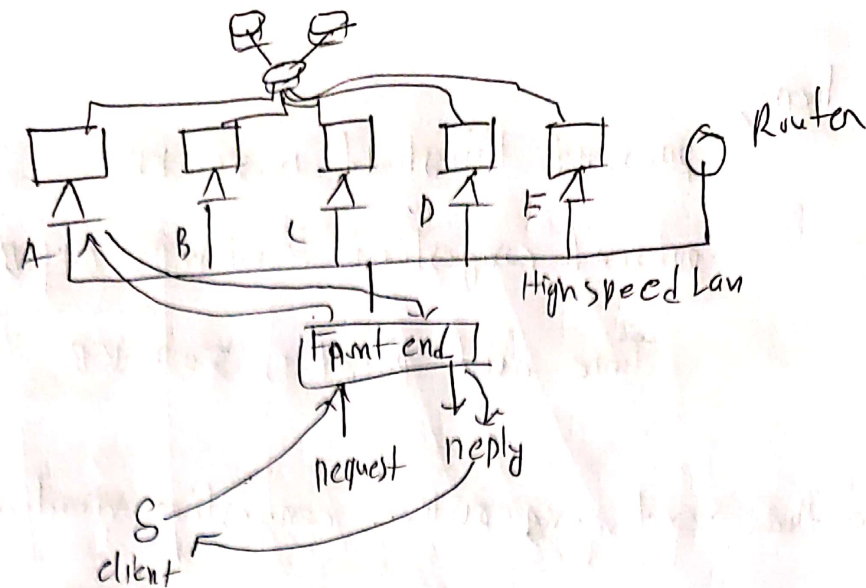 Router
A
B
C
D
E
High speed Lan
Front-end
request
reply
client